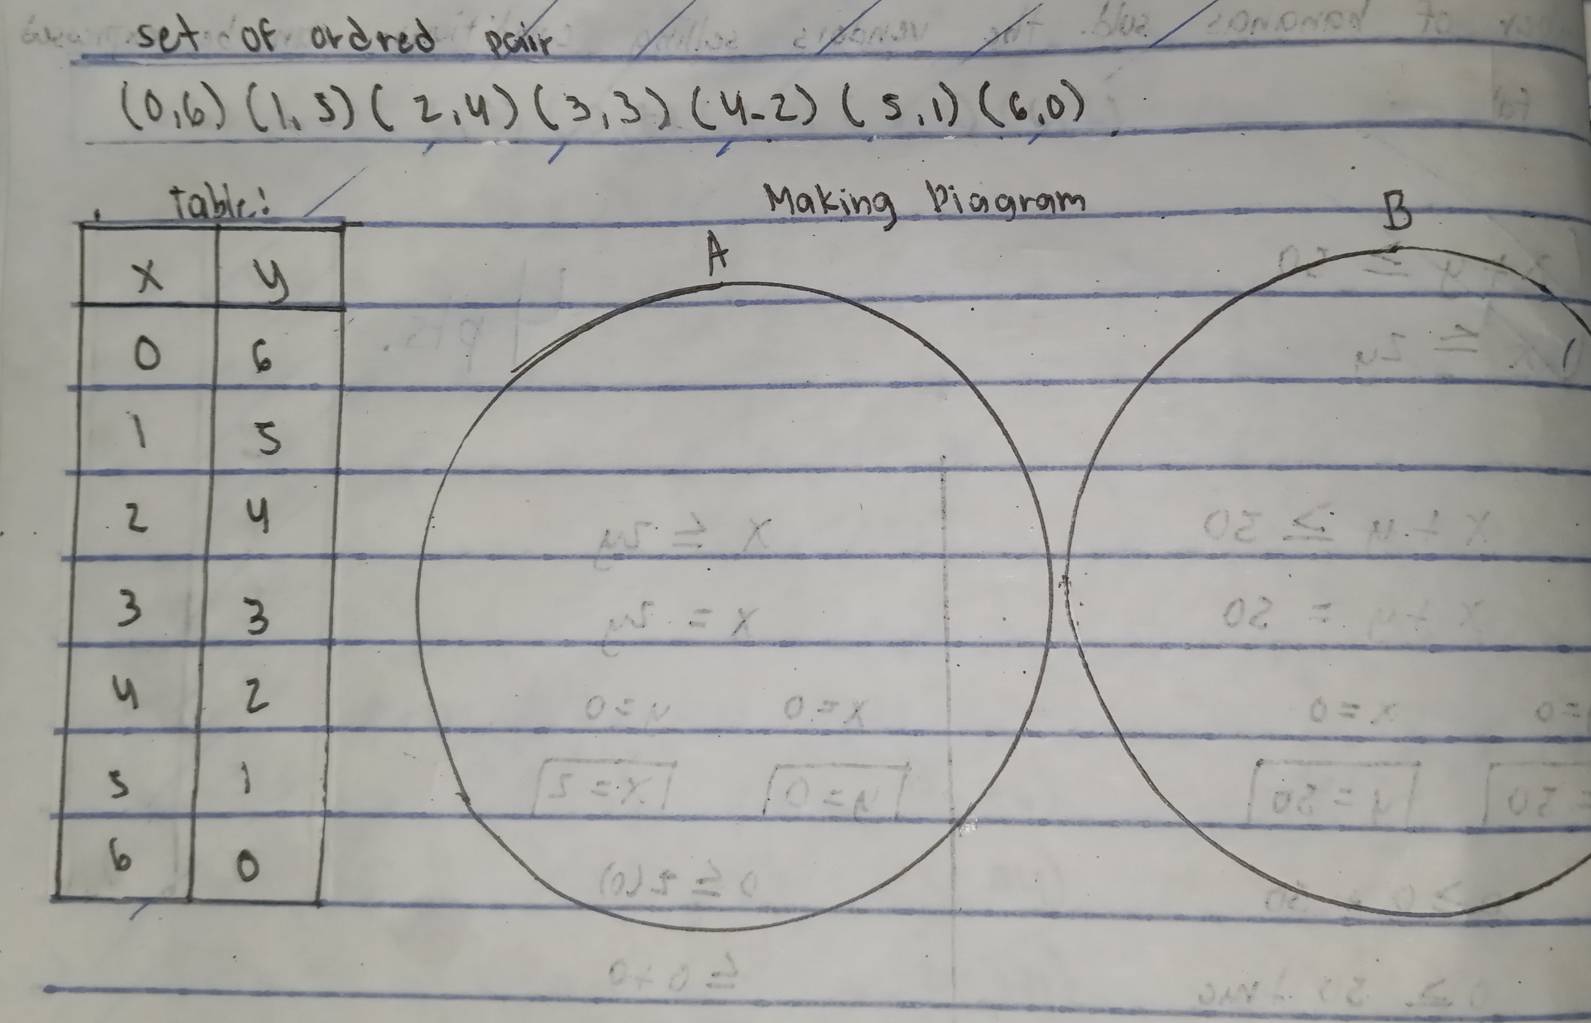 set of ordred pair
(0,6) (1,5) ( 2,4) (3,3) (4-2) (5,1) (6,0)
table:
Making Diagram
A
B
x y
0 6
1 5
2 4
3 3
4 2
5 1
6 0